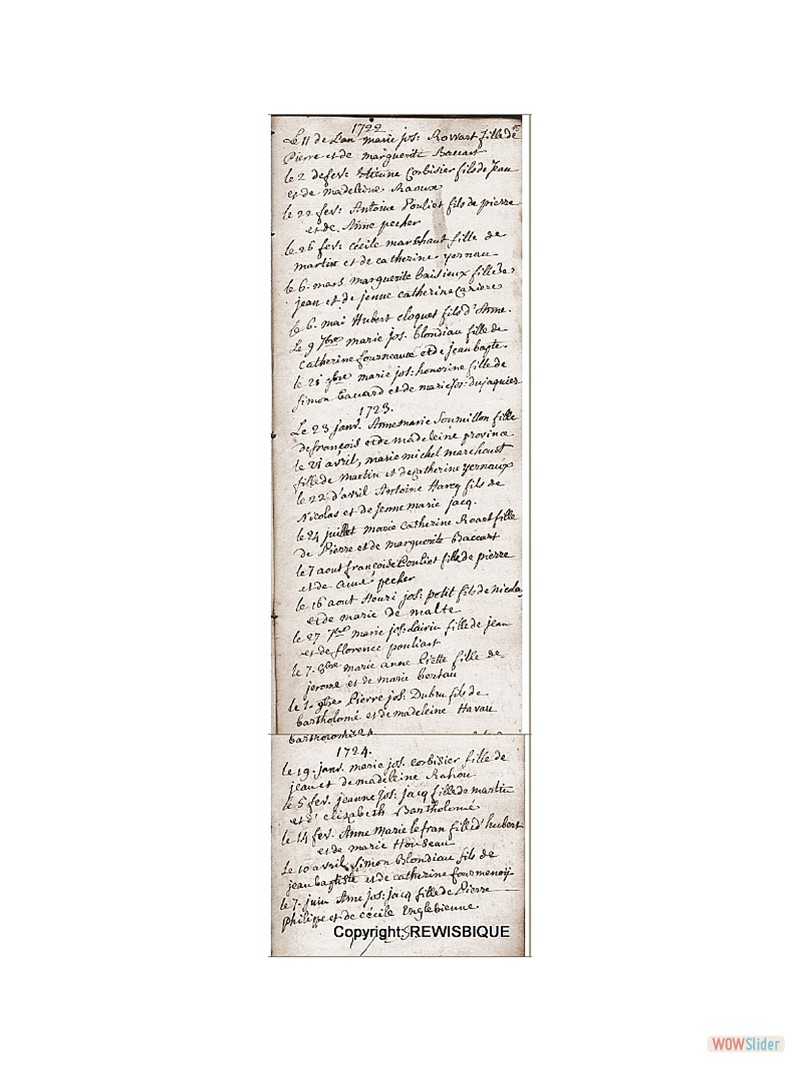 1722
Le 11 de L'an marie jos: Rowart fille de
Pierre et de marguerite Baccart
le 2 de fev: Etienne Corbisier fils de Jean
et de madeleine Raoux
le 22 fev: Antoine Pouliet fils de pierre
et de Anne pecher
le 26 fev: cécile marchaut fille de
martin et de catherine yernau
le 6. mars marguerite baisieux fille de
jean et de jenne catherine Cariere
le 6. mai Hubert cloquet fils d'Anne.
Le 9 7bre marie jos. blondiau fille de
Catherine fourneaux et de jean bapte.
le 21 9bre marie jos: honorine fille de
simon bauard et de marie jos: dujaquier
1723.
Le 23 janv. Anne marie Soumillon fille
de françois et de madeleine province
le 21 avril, marie michel marchaut
fille de Martin et de catherine yernaux
le 22 d'avril Antoine Harcq fils de
Nicolas et de jenne marie jacq.
le 24 juillet marie Catherine Roart fille
de Pierre et de marguerite Baccart
le 7 aout françoise Pouliet fille de pierre
et de Anne pecher
le 16 aout Henri jos: petit fils de Nicolas
et de marie de malte
le 27 7bre marie jos: Lairin fille de jean
et de florence pouliart
le 7. 8bre marie anne Piette fille de
jerome et de marie bertau
le 1. 9bre Pierre jos: Dubru fils de
bartholomé et de madeleine Havau
1724.
le 19. janv. marie jos. corbisier fille de
jean et de madeleine Rahou
le 5 fev. jeanne jos: jacq fille de martin
et d'elizabeth Bartholomé
le 14 fev. Anne Marie le fran fille d'hubert
et de marie Houseau
Le 10 avril Simon Blondiau fils de
jean baptiste et de catherine fourmenoij
le 7. juin Anne jos: jacq fille de Pierre
philippe et de cécile Englebienne.
Copyright: REWISBIQUE
WOWSlider